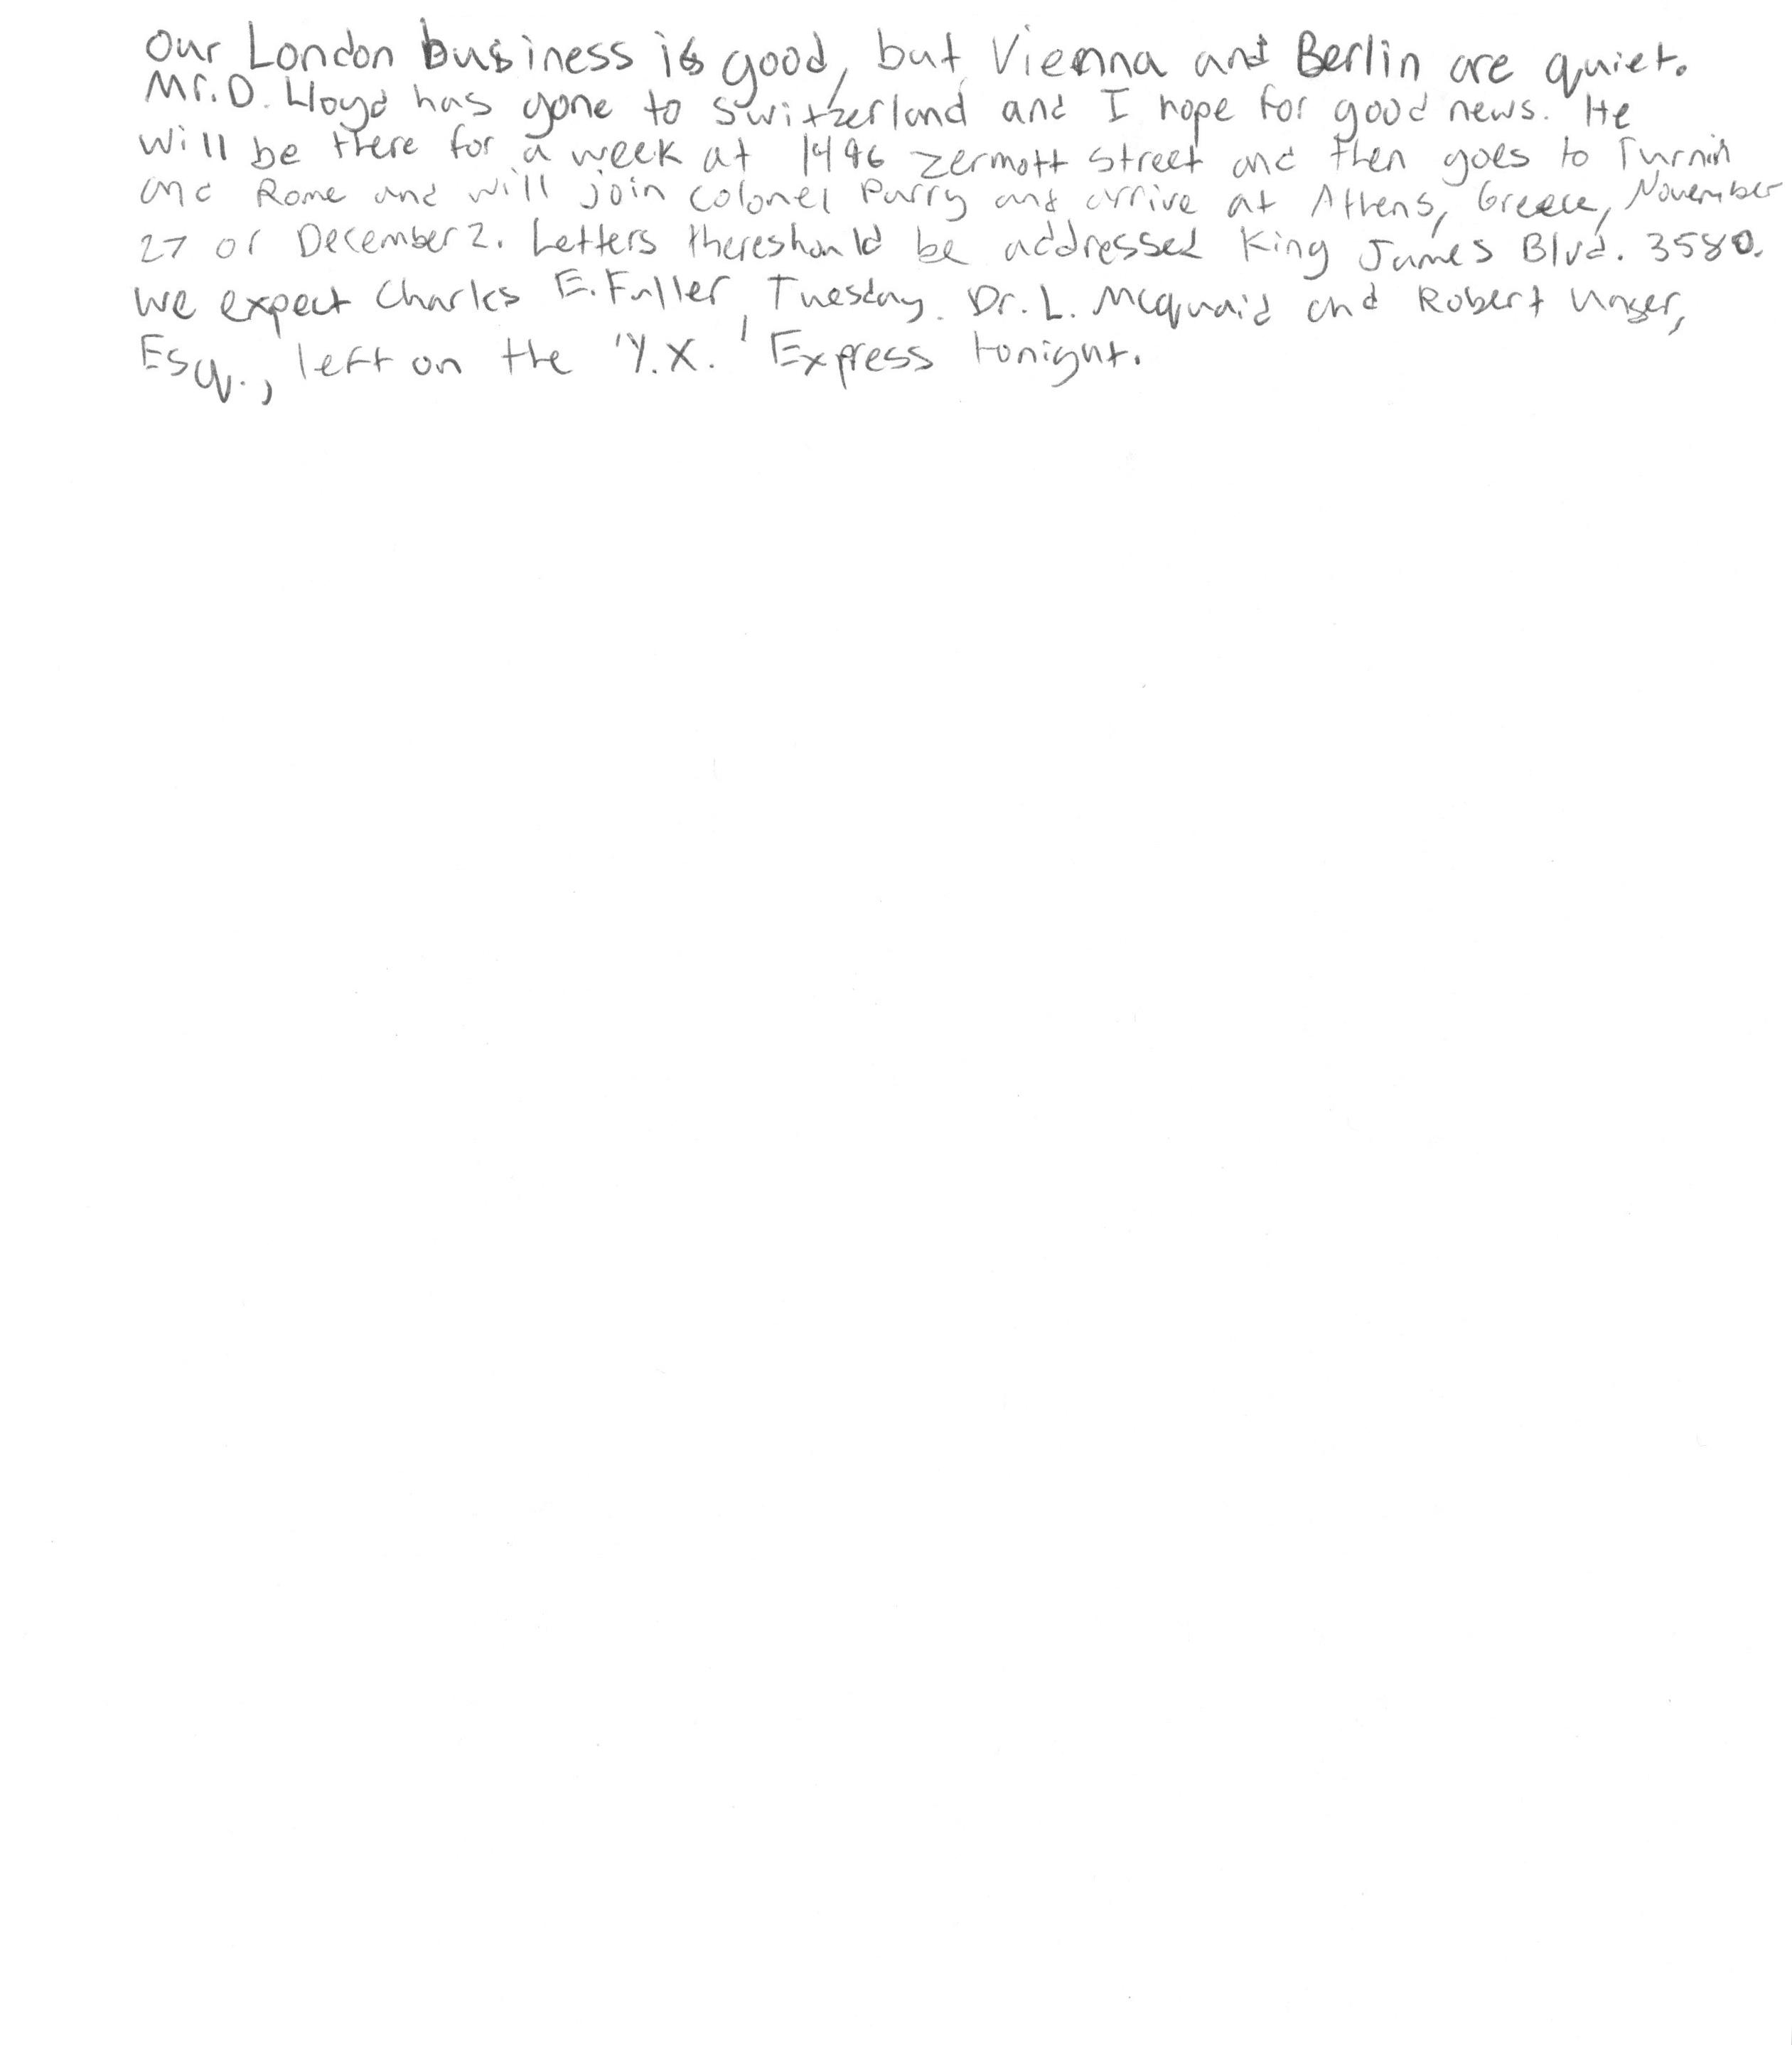 Our London business is good, but Vienna and Berlin are quiet.
Mr. D. Lloyd has gone to Switzerland and I hope for good news. He
will be there for a week at 1496 Zermott street and then goes to Turnin
and Rome and will join Colonel Parry and arrive at Athens, Greece, November
27 or December 2. Letters thereshould be addressed King James Blvd. 3580.
We expect Charles E. Fuller Tuesday. Dr. L. McQuaid and Robert Unger,
Esq., left on the 'Y.X.' Express tonight.